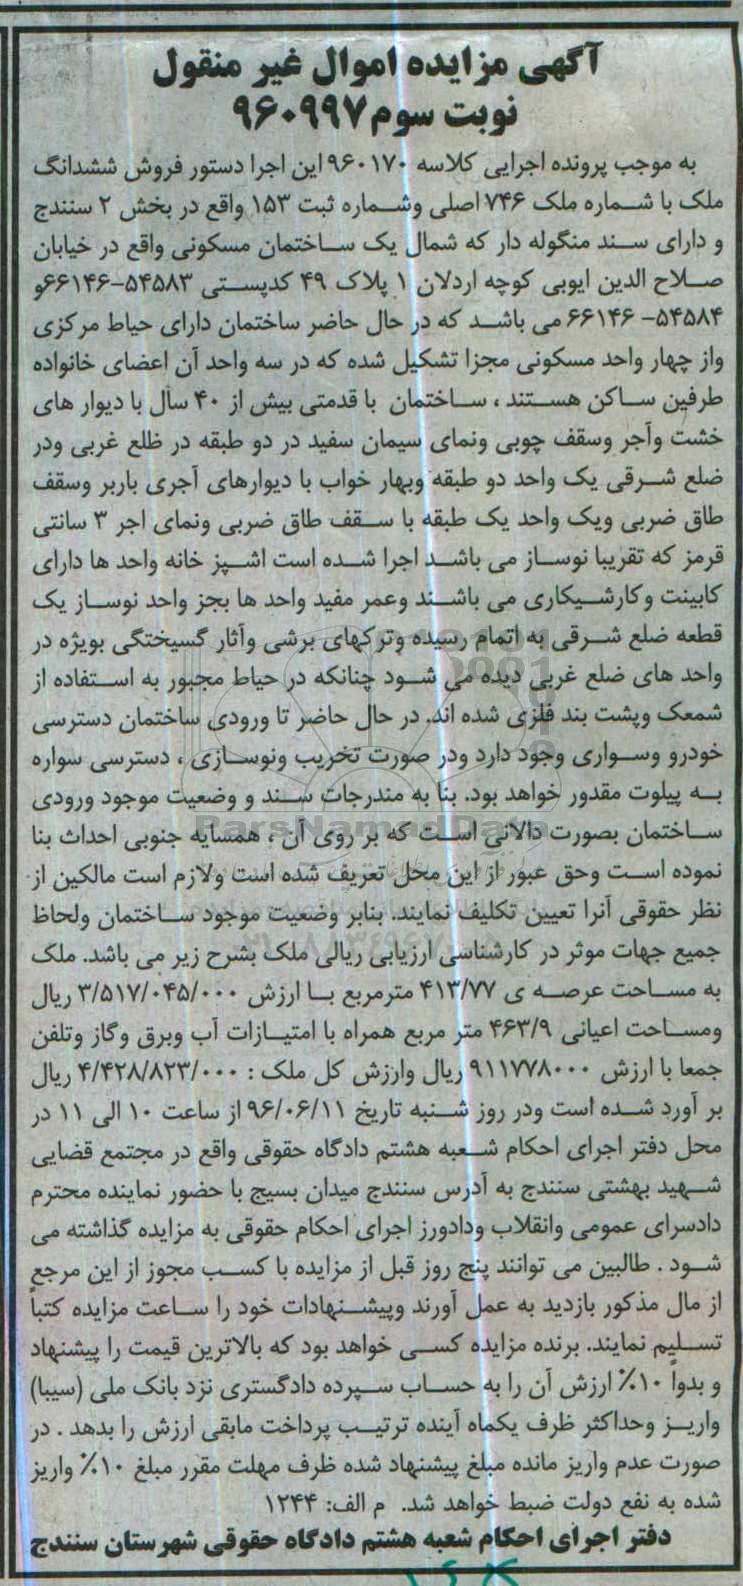 آگهی مزایده اموال غیر منقول
نوبت سوم ۹۶۰۹۹۷
به موجب پرونده اجرایی کلاسه ۹۶۰۱۷۰ این اجرا دستور فروش ششدانگ
ملک با شماره ملک ۷۴۶ اصلی وشماره ثبت ۱۵۳ واقع در بخش ۲ سنندج
و دارای سند منگوله دار که شمال یک ساختمان مسکونی واقع در خیابان
صلاح الدین ایوبی کوچه اردلان ۱ پلاک ۴۹ کدپستی ۵۴۵۸۳-۶۶۱۴۶و
۵۴۵۸۴- ۶۶۱۴۶ می باشد که در حال حاضر ساختمان دارای حیاط مرکزی
واز چهار واحد مسکونی مجزا تشکیل شده که در سه واحد آن اعضای خانواده
طرفین ساکن هستند ، ساختمان با قدمتی بیش از ۴۰ سال با دیوار های
خشت وآجر وسقف چوبی ونمای سیمان سفید در دو طبقه در ظلع غربی ودر
ضلع شرقی یک واحد دو طبقه وبهار خواب با دیوارهای آجری باربر وسقف
طاق ضربی ویک واحد یک طبقه با سقف طاق ضربی ونمای اجر ۳ سانتی
قرمز که تقریبا نوساز می باشد اجرا شده است اشپز خانه واحد ها دارای
کابینت وکارشیکاری می باشند وعمر مفید واحد ها بجز واحد نوساز یک
قطعه ضلع شرقی به اتمام رسیده وترکهای برشی وآثار گسیختگی بویژه در
واحد های ضلع غربی دیده می شود چنانکه در حیاط مجبور به استفاده از
شمعک وپشت بند فلزی شده اند. در حال حاضر تا ورودی ساختمان دسترسی
خودرو وسواری وجود دارد ودر صورت تخریب ونوسازی ، دسترسی سواره
به پیلوت مقدور خواهد بود. بنا به مندرجات سند و وضعیت موجود ورودی
ساختمان بصورت دالانی است که بر روی آن ، همسایه جنوبی احداث بنا
نموده است وحق عبور از این محل تعریف شده است ولازم است مالکین از
نظر حقوقی آنرا تعیین تکلیف نمایند. بنابر وضعیت موجود ساختمان ولحاظ
جمیع جهات موثر در کارشناسی ارزیابی ریالی ملک بشرح زیر می باشد. ملک
به مساحت عرصه ی ۴۱۳/۷۷ مترمربع با ارزش ۳/۵۱۷/۰۴۵/۰۰۰ ریال
ومساحت اعیانی ۴۶۳/۹ متر مربع همراه با امتیازات آب وبرق وگاز وتلفن
جمعا با ارزش ۹۱۱۷۷۸۰۰۰ ریال وارزش کل ملک : ۴/۴۲۸/۸۲۳/۰۰۰ ریال
بر آورد شده است ودر روز شنبه تاریخ ۹۶/۰۶/۱۱ از ساعت ۱۰ الی ۱۱ در
محل دفتر اجرای احکام شعبه هشتم دادگاه حقوقی واقع در مجتمع قضایی
شهید بهشتی سنندج به آدرس سنندج میدان بسیج با حضور نماینده محترم
دادسرای عمومی وانقلاب ودادورز اجرای احکام حقوقی به مزایده گذاشته می
شود . طالبین می توانند پنج روز قبل از مزایده با کسب مجوز از این مرجع
از مال مذکور بازدید به عمل آورند وپیشنهادات خود را ساعت مزایده کتباً
تسلیم نمایند. برنده مزایده کسی خواهد بود که بالاترین قیمت را پیشنهاد
و بدواً ۱۰٪ ارزش آن را به حساب سپرده دادگستری نزد بانک ملی (سیبا)
واریز وحداکثر ظرف یکماه آینده ترتیب پرداخت مابقی ارزش را بدهد . در
صورت عدم واریز مانده مبلغ پیشنهاد شده ظرف مهلت مقرر مبلغ ۱۰٪ واریز
شده به نفع دولت ضبط خواهد شد. م الف: ۱۲۴۴
دفتر اجرای احکام شعبه هشتم دادگاه حقوقی شهرستان سنندج
ParsNamadData